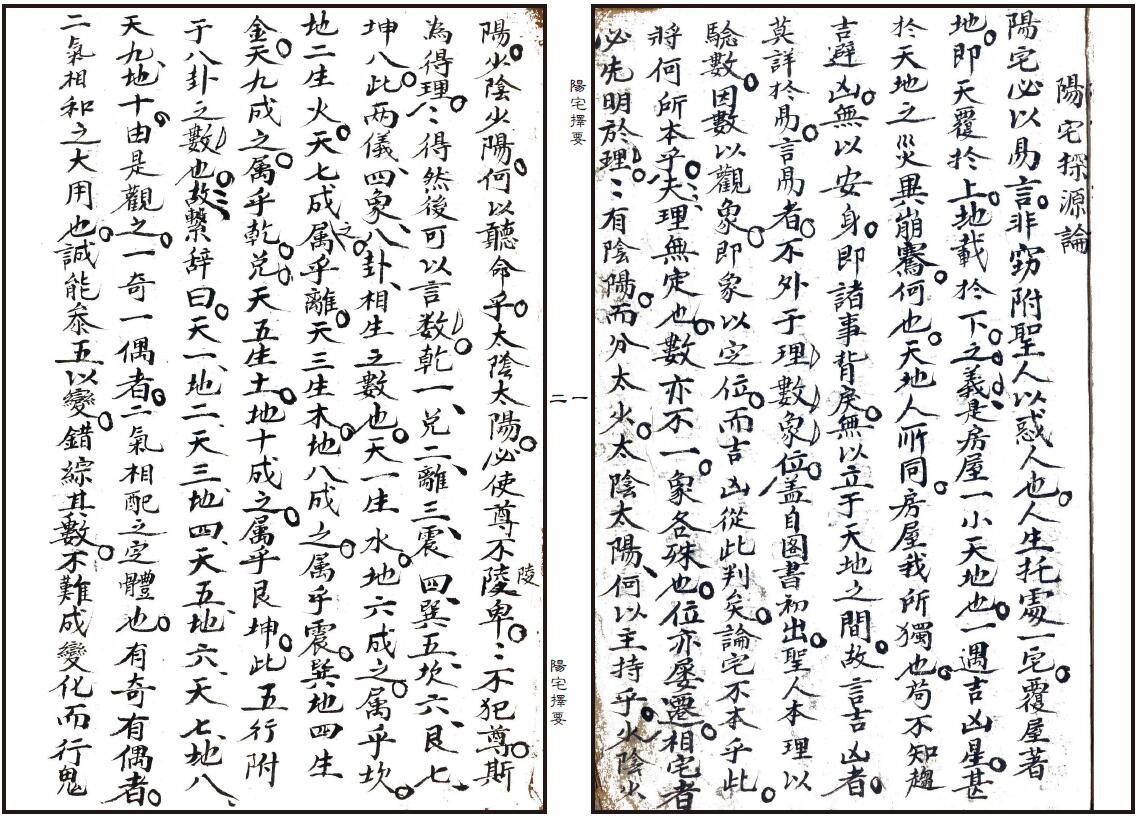 陽宅探源論
陽宅必以易言。非窃附聖人以惑人也。人生托處一宅。覆屋著
地。即天覆於上。地載於下。之義。是房屋一小天地也。一遇吉凶星。甚
於天地之災異崩騫。何也。天地人所同。房屋我所獨也。苟不知趨
吉避凶。無以安身。即諸事背戾。無以立于天地之間。故言吉凶者。
莫詳於易。言易者。不外于理數象位。盖自图書初出。聖人本理以
驗數。因數以觀象。即象以定位。而吉凶從此判矣。論宅不本乎此。
將何所本乎。夫理無定也。數亦不一。象各殊也。位亦屡遷。相宅者
必先明於理。〻有陰陽。而分太少。太陰太陽、何以主持乎。少陰少
陽。少陰少陽。何以聽命乎。太陰太陽。必使尊不陵卑。〻不犯尊。斯
陵
為得理。〻得然後可以言数。乾一、兑二、離三、震四、巽五、坎六、艮七、
坤八。此两儀、四象、八卦、相生之數也。天一生水。地六成之。属乎坎。
地二生火。天七成之属乎離。天三生木。地八成之。属乎震。巽地四生
金。天九成之。属乎乾。兑。天五生土。地十成之。属乎艮坤。此五行附
于八卦之數也。故繫辞曰。天一、地二、天三、地四、天五、地六、天七、地八、
天九、地十。由是觀之。一奇一偶者。二氣相配之定體也。有奇有偶者。
二氣相和之大用也。誠能叅五以變。錯綜其數。不難成變化而行鬼
陽宅擇要
一
二
陽宅擇要